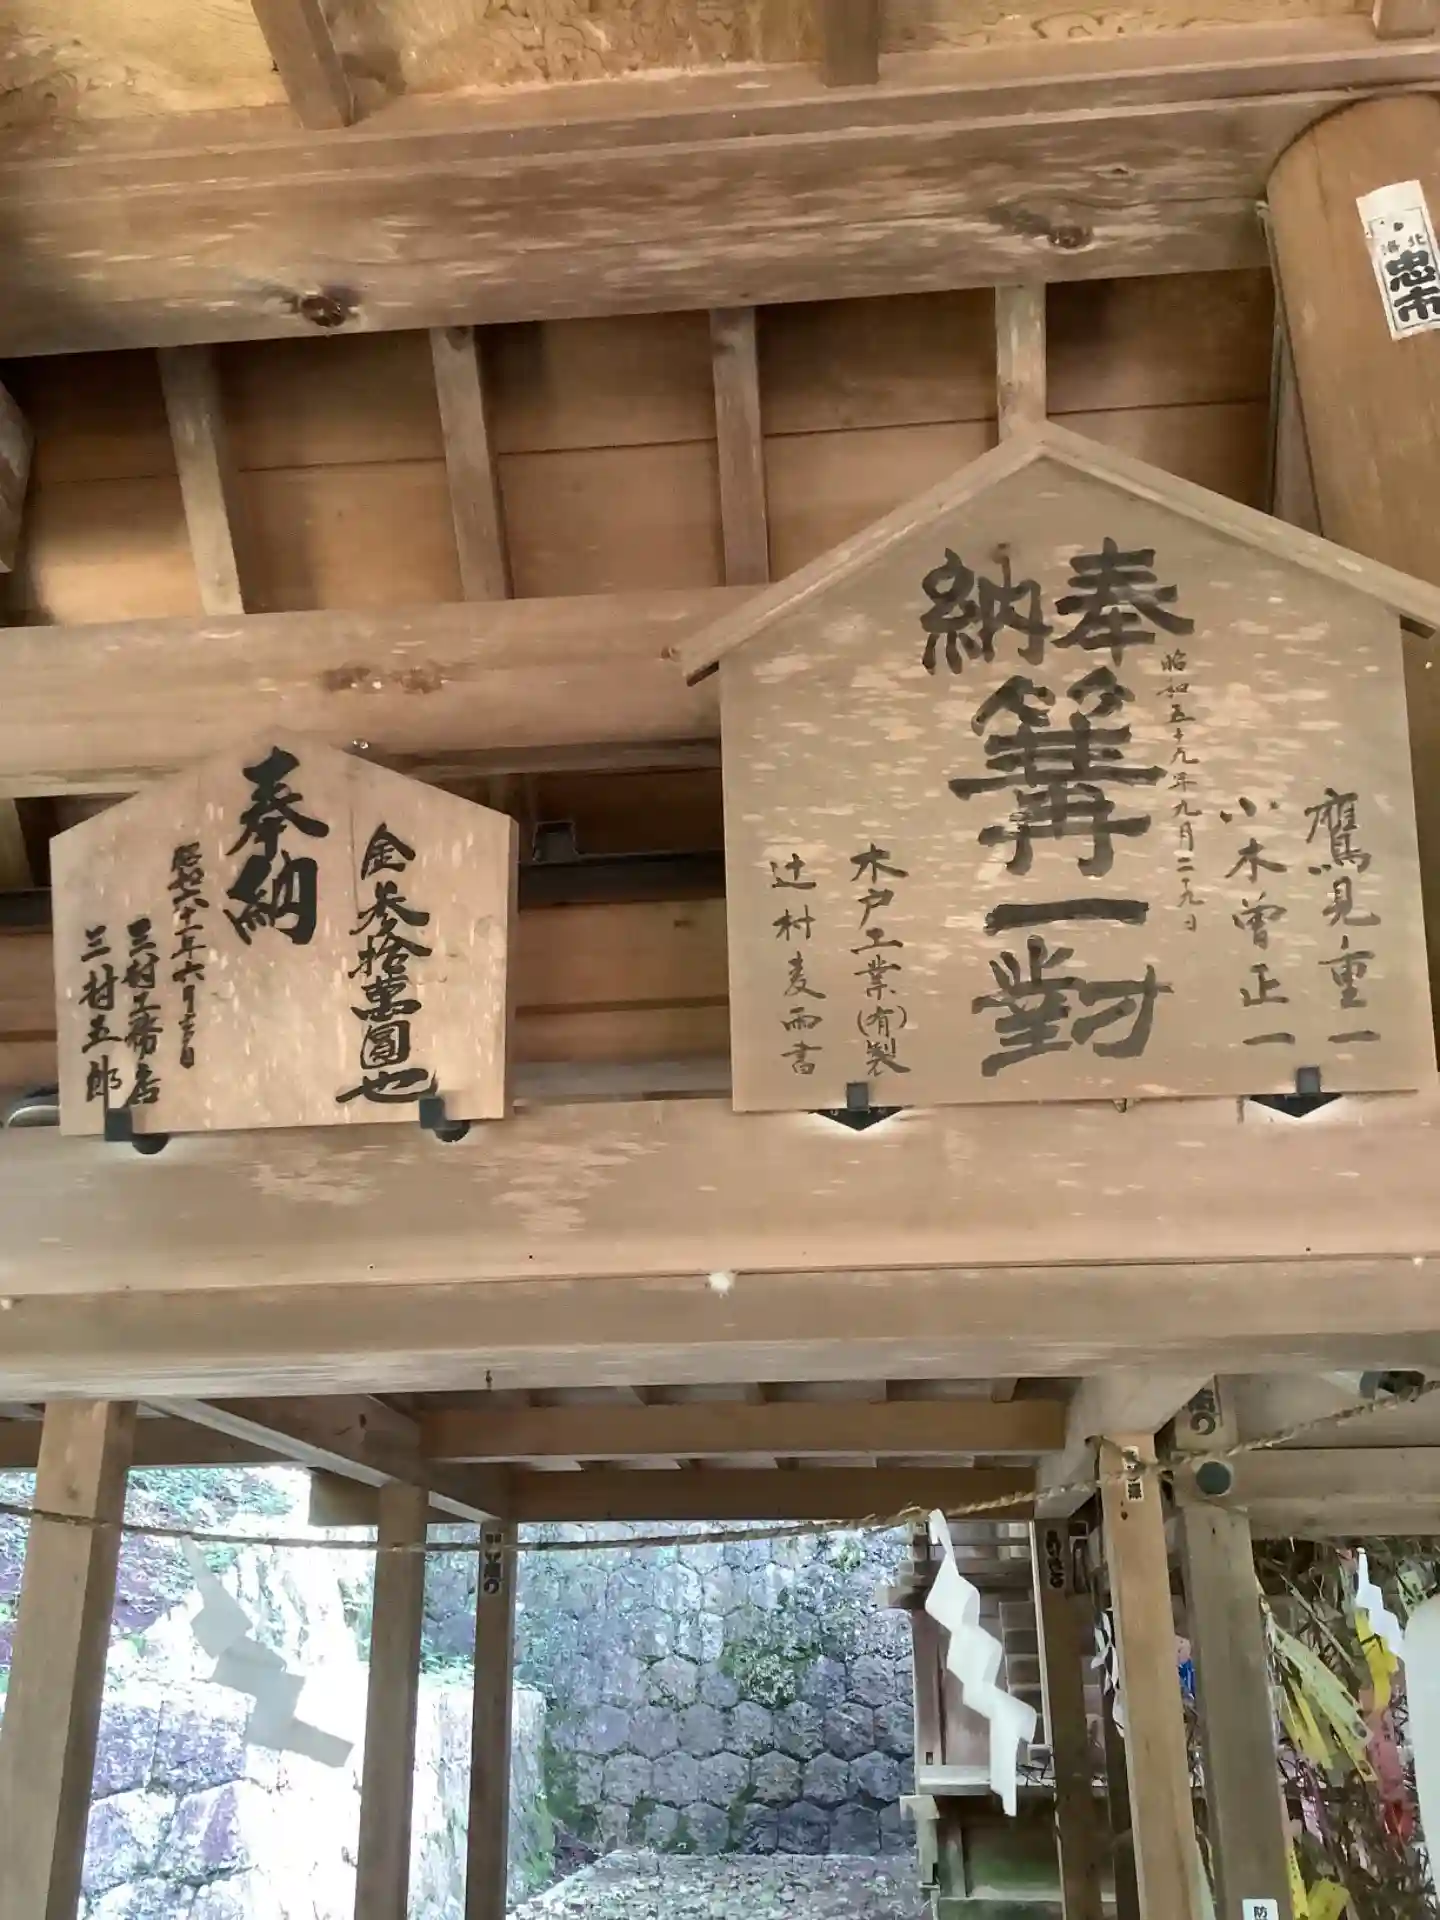 奉納
篝一對
昭和五十九年九月二十九日
鷹見重一
小木曽正一
木戸工業(有)製
辻村麦雨書
金参拾萬圓也
奉納
三村工務店
三村五郎
洛北
忠市
防